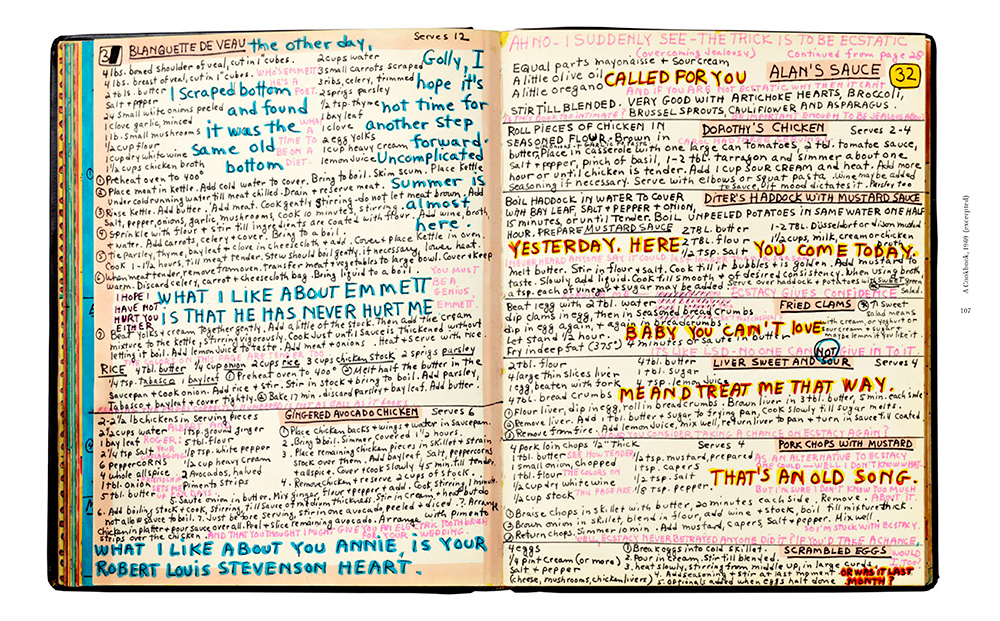 3 BLANQUETTE DE VEAU
Serves 12
4 lbs. boned shoulder of veal, cut in 1" cubes.
4 lbs. breast of veal, cut in 1" cubes.
2 tbls. butter
Salt + pepper
24 small white onions peeled
1 clove garlic, minced
1 lb. small mushrooms
1/2 cup flour
1 cup dry white wine
1 1/2 cups chicken broth
2 cups water
3 small carrots scraped
3 ribs, celery, trimmed
2 sprigs parsley
1/2 tsp. thyme
1 bay leaf
1 clove
2 egg yolks
1 cup heavy cream
lemon juice
the other day,
I scraped bottom
and found
it was the
same old
bottom
Golly, I
hope it's
not time for
another step
forward.
Uncomplicated
Summer is
almost
here.
WHO'S EMMETT?
HE'S A
POET.
WHAT
A
TIME TO
BE ON A
DIET.
① Preheat oven to 400°
② Place meat in kettle. Add cold water to cover. Bring to boil. Skim scum. Place kettle
under cold running water till meat chilled. Drain + reserve meat.
③ Rinse kettle. Add butter. Add meat. Cook gently stirring - do not let meat brown. Add
Salt, pepper, onions, garlic, mushrooms, cook 10 minutes, stirring.
④ Sprinkle with flour + stir till ingredients are coated with flour. Add wine, broth,
+ water. Add carrots, celery + cover. Bring to a boil.
⑤ Tie parsley, thyme, bay leaf + clove in cheesecloth + add. Cover + place kettle in oven.
Cook 1-1 1/2 hours, till meat tender. Stew should boil gently. if necessary, lower heat.
⑥ When meat tender, remove from oven. Transfer meat + vegetables to large bowl. Cover + keep
warm. Discard celery, carrot + cheesecloth bag. Bring liquid to a boil.
YOU MUST
BE A
GENIUS
EMMETT.
I HOPE I
HAVE NOT
HURT YOU
EITHER
WHAT I LIKE ABOUT EMMETT
IS THAT HE HAS NEVER HURT ME
⑦ Beat yolks + cream together gently. Add a little of the stock. Then add the cream
mixture to the kettle, stirring vigorously. Cook just until sauce is thickened without
letting it boil. Add lemon juice to taste. Add meat + onions. Heat + Serve with rice
THE COLORS ON THIS PAGE ARE TENDER TOO
RICE 4 tbl. butter 1/4 cup onion 2 cups rice 3 cups chicken stock 2 sprigs parsley
1/4 tsp. Tabasco 1 bay leaf ① Preheat oven to 400° ② Melt half the butter in the
Saucepan + cook onion. Add rice + stir. Stir in stock + bring to boil. Add parsley,
Tabasco, + bayleaf + cover tightly. ③ Bake 17 min. discard parsley + bayleaf. Add butter.
GINGERED AVOCADO CHICKEN Serves 6
2-2 1/2 lb chickens in serving pieces
2 1/2 cups water
1 bay leaf
2 1/2 tsp salt
6 peppercorns
4 whole allspice
1 tbl. oil
5 tbl. butter
1 tsp. ground ginger
5 tbl. flour
1/8 tsp. white pepper
1/2 cup heavy cream
2 Avocados, halved
Pimento strips
① Place chicken backs + wings + water in saucepan.
2. Bring to boil. Simmer, covered 1 1/2 hours.
3. Place remaining chicken pieces in skillet + strain
stock over them. Add bay leaf, Salt, peppercorns
+ allspice. Cover + cook slowly 45 min. till tender.
4. Remove chicken + reserve 2 cups of stock.
5. Sauté onion in butter. Mix ginger, flour + pepper + add. Cook, stirring, 1 minute.
6. Add boiling stock + cook, stirring till Sauce of medium thickness. Stir in cream + heat but do
not allow sauce to boil. 7. Just before serving, stir in one avocado peeled + diced. Arrange
chicken in platter + pour sauce over all. Peel + slice remaining avocado. Arrange with Pimento
strips over the chicken. AND THAT YOU THOUGHT I MIGHT GIVE YOU MY ELECTRIC TOOTH BRUSH
FOR YOUR WEDDING.
WHAT I LIKE ABOUT YOU ANNIE, IS YOUR
ROBERT LOUIS STEVENSON HEART.
AH NO - I SUDDENLY SEE - THE TRICK IS TO BE ECSTATIC
(overcoming Jealousy)
Continued from page 28
Equal parts mayonaisse + sour cream
A little olive oil
A little oregano
CALLED FOR YOU
ALAN'S SAUCE
32
AND IF YOU ARE NOT ECSTATIC WHY THEN IT CAN'T
STIR TILL BLENDED. VERY GOOD WITH ARTICHOKE HEARTS, BROCCOLI,
BRUSSEL SPROUTS, CAULIFLOWER AND ASPARAGUS.
IS THIS BOOK TOO INTIMATE? BE IMPORTANT ENOUGH TO BE JEALOUS ABOUT
ROLL PIECES OF CHICKEN IN DOROTHY'S CHICKEN Serves 2-4
SEASONED FLOUR. Brown in
butter. Place in casserole with one large can tomatoes, 1 tbl. tomatoe sauce,
Salt + pepper, pinch of basil, 1-2 tbl. tarragon and simmer about one
hour or until chicken is tender. Add 1 cup SOUR CREAM and heat. Add more
seasoning if necessary. Serve with elbows or squat pasta. Wine may be added
to sauce, if mood dictates it. Parsley too
BOIL HADDOCK IN WATER TO COVER DITER'S HADDOCK WITH MUSTARD SAUCE
WITH BAY LEAF, SALT + PEPPER + ONION,
15 MINUTES, OR UNTIL TENDER. BOIL UNPEELED POTATOES IN SAME WATER ONE HALF
HOUR. PREPARE MUSTARD SAUCE 2 TBL. butter 1-2 TBL. Düsseldorf or dijon mustard
2 TBL. flour 1 1/2 cups, milk, cream or chicken
1/2 tsp salt
YESTERDAY. HERE YOU COME TODAY.
I NEVER HEARD ANYONE SAY IT COULD
melt butter. Stir in flour + salt. Cook till it bubbles + is golden. Add mustard to
taste. Slowly add liquid. Cook till smooth + of desired consistency. When using broth
a tsp. each of vinegar + sugar may be added. Serve over haddock + potatoes with sweet green
Salad.
ECSTASY GIVES CONFIDENCE
Beat egg with 2 tbl. water FRIED CLAMS
dip clams in egg, then in seasoned bread crumbs
dip in egg, again + again in breadcrumbs.
Let stand 1/2 hour.
Fry in deep fat (375°) 4 minutes or sauté in butter
Sweet
Salad means
with cream, or yoghurt or
sour cream + sugar +
lemon if you like it
BABY YOU CAN'T LOVE
ITS LIKE LSD - NO ONE CAN NOT GIVE IN TO IT.
LIVER SWEET AND SOUR Serves 4
2 tbl. flour
4 large thin slices liver
1 egg, beaten with fork
4 tbl. bread crumbs
4 tbl. butter
1 tbl. sugar
4 tsp. lemon juice
ME AND TREAT ME THAT WAY.
① Flour liver, dip in egg, roll in bread crumbs. Brown liver in 3 tbl. butter, 5 min. each side
② Remove liver. Add 1 tbl. butter + sugar to frying pan, cook slowly till sugar melts.
③ Remove from fire. Add lemon juice, mix well, return liver to pan + turn, in sauce till coated
WOULD YOU CONSIDER TAKING A CHANCE ON ECSTASY AGAIN?
4 Pork loin chops 1/2" thick Serves 4 PORK CHOPS WITH MUSTARD
2 tbl. butter
1 small onion, chopped
1 tbl. flour
1/2 cup dry white wine
1/2 cup stock
1/2 tsp. mustard, prepared
1 tsp. capers
1/2 tsp. salt
1/8 tsp. pepper.
SEE HOW TENDER
THE COLORS ON
THIS PAGE ARE
AS AN ALTERNATIVE TO ECSTASY
WE COULD — WELL I DON'T KNOW WHAT.
THAT'S AN OLD SONG.
BUT I'M SURE I DON'T KNOW TOO MUCH
ABOUT IT.
① Braise chops in skillet with butter, 20 minutes each side. Remove.
② Brown onions in skillet, blend in flour, add wine + stock, boil till mixture thick.
③ Return chops. Simmer 10 min. Add mustard, capers, Salt + pepper. Mix well.
SO I'M STUCK WITH ECSTASY.
WELL ECSTASY NEVER BETRAYED ANYONE DID IT? IF YOU'D TAKE A CHANCE,
WOULD
I, TOO?
4 eggs
1/4 pint cream (or more)
Salt + pepper
(cheese, mushrooms, chicken livers)
SCRAMBLED EGGS
① Break eggs into cold skillet.
2. Pour in cream. Stir till blended.
3. heat slowly, stirring from middle up, in large curds
4. Add seasoning + stir at last moment
5. optionals added when eggs half done
OR WAS IT LAST
MONTH?
A Cookbook, 1969 (excerpted)
107